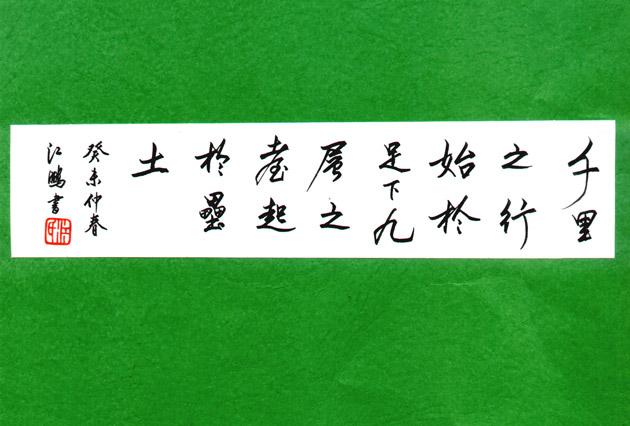 千里
之行
始於
足下九
層之
臺起
於壘
土
癸未仲春
江鵬書